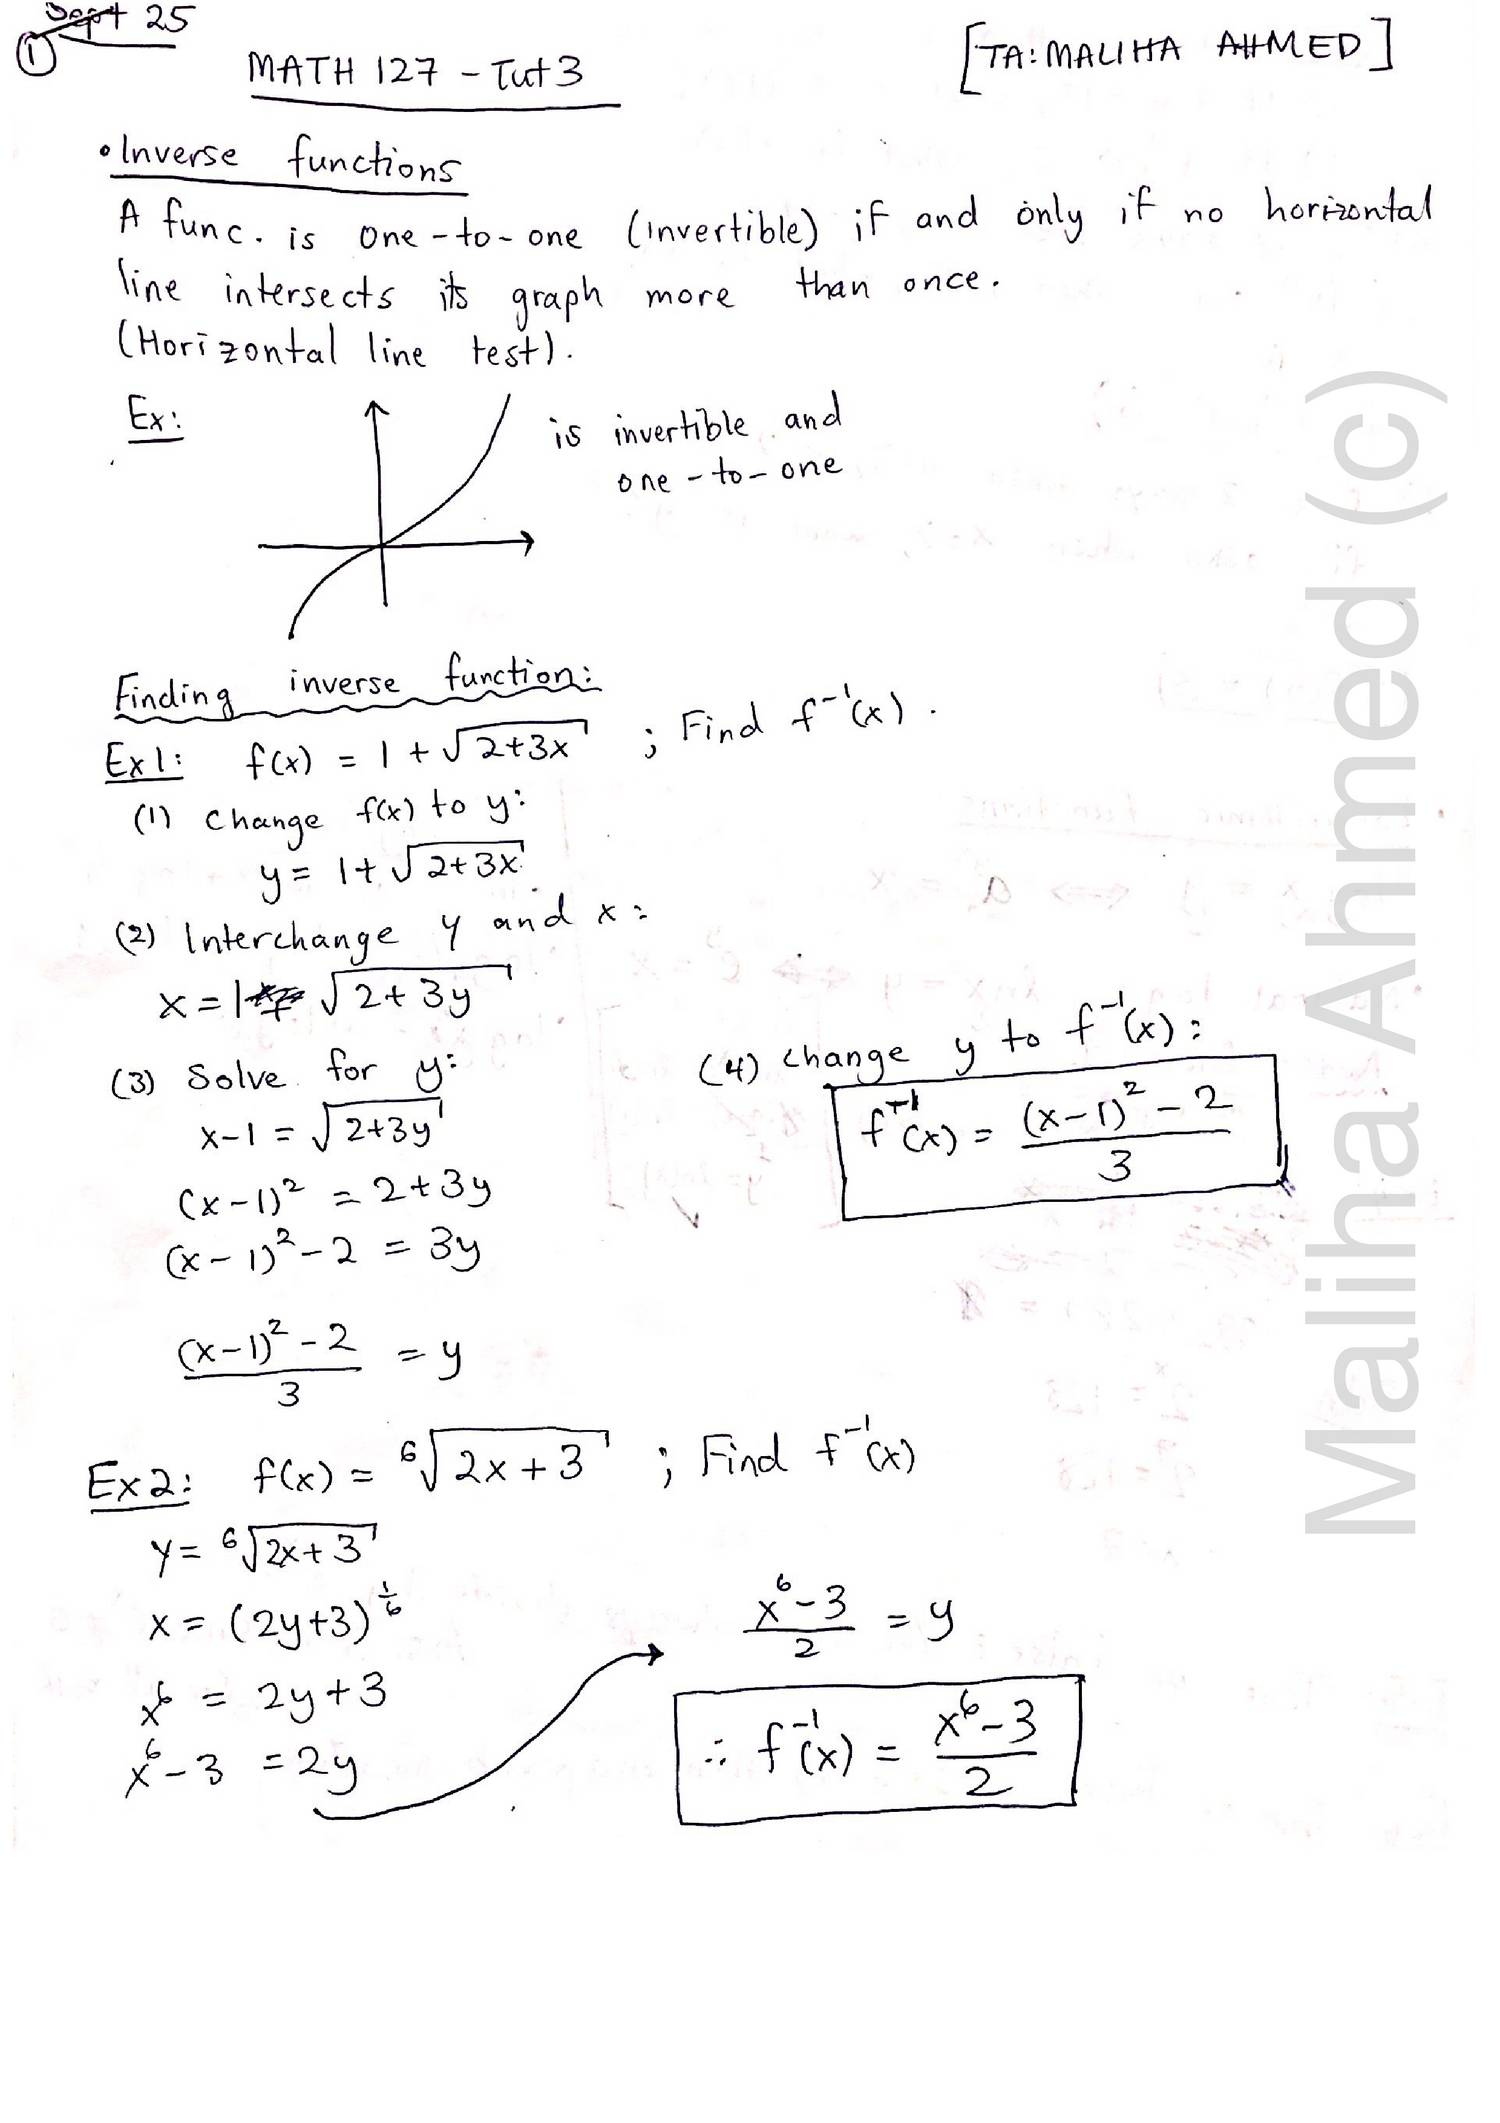 Sept 25
①
[TA: MALIHA AHMED]
MATH 127 - Tut 3
• Inverse functions
A func. is one-to-one (invertible) if and only if no horizontal
line intersects its graph more than once.
(Horizontal line test).
Ex:
is invertible and
one-to-one
Finding inverse function:
Ex1: f(x) = 1 + √(2+3x) ; Find f⁻¹(x).
(1) Change f(x) to y:
y = 1 + √(2+3x)
(2) Interchange y and x:
x = 1 + √(2+3y)
(3) Solve for y:
x-1 = √(2+3y)
(x-1)² = 2+3y
(x-1)² - 2 = 3y
((x-1)² - 2)/3 = y
(4) Change y to f⁻¹(x):
f⁻¹(x) = ((x-1)² - 2)/3
Ex2: f(x) = ⁶√(2x+3) ; Find f⁻¹(x)
y = ⁶√(2x+3)
x = (2y+3)^(1/6)
x⁶ = 2y+3
x⁶ - 3 = 2y
(x⁶-3)/2 = y
∴ f⁻¹(x) = (x⁶-3)/2
Maliha Ahmed (c)